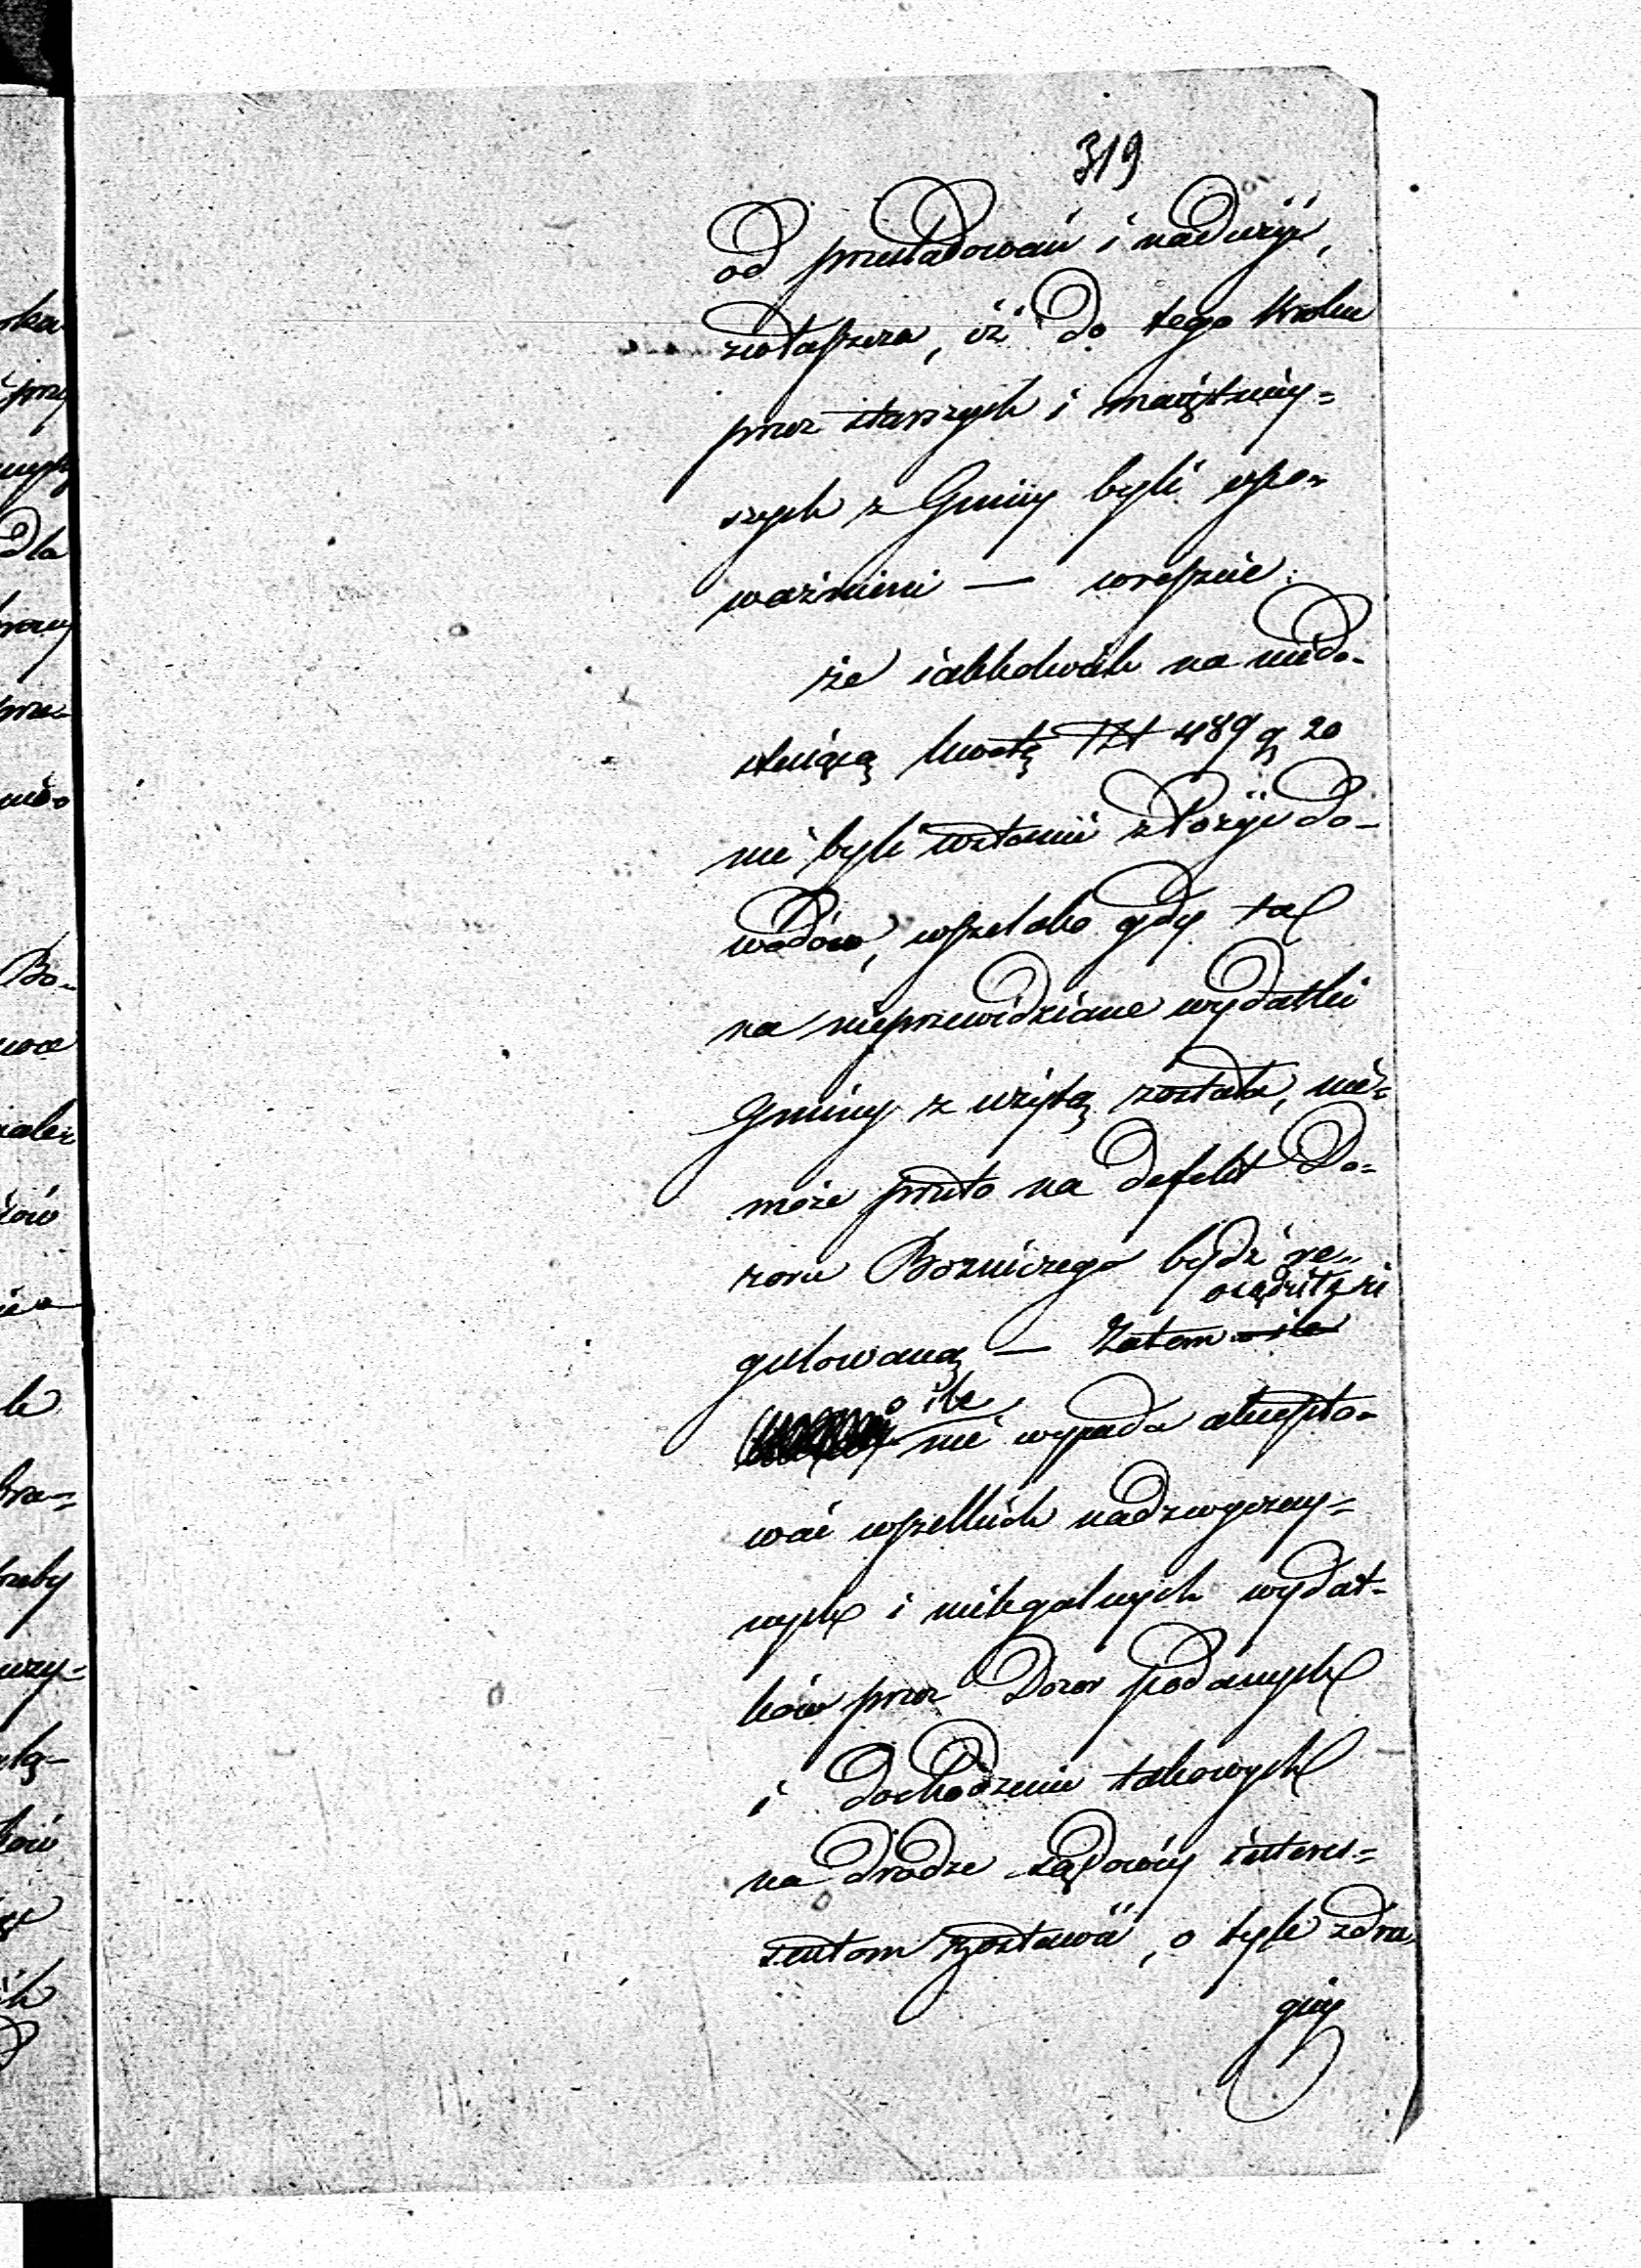 319
od prześladowań i nadużyć,
zwłaszcza, iż do tego kroku
przez starszych i maiętniy=
szych z Gminy byli upo=
ważnieni — wreszcie
że iakkolwiek na niedo=
stającą kwotę Złt 489 g 20
nie byli wstanie złożyć do=
wodów, wszelako gdy ta
na nieprzewidziane wydatki
Gminy z użytą została, nie=
może przeto na defekt Do=
zoru Bozniczego bydź re=
osądziła, że
gulowaną — Zatem o ile
o ile
nie wypada akcepto=
wać wszelkich nadzwyczay=
nych i nielegalnych wydat=
ków przez Dozor podanych
i dochodzenie takowych
na drodze sądowéy interes=
sentom zostawić, o tyle zdru
giéy
ka
przy
nych
dla
Bo=
ków
le
bra=
zeby
uży=
ków
ich